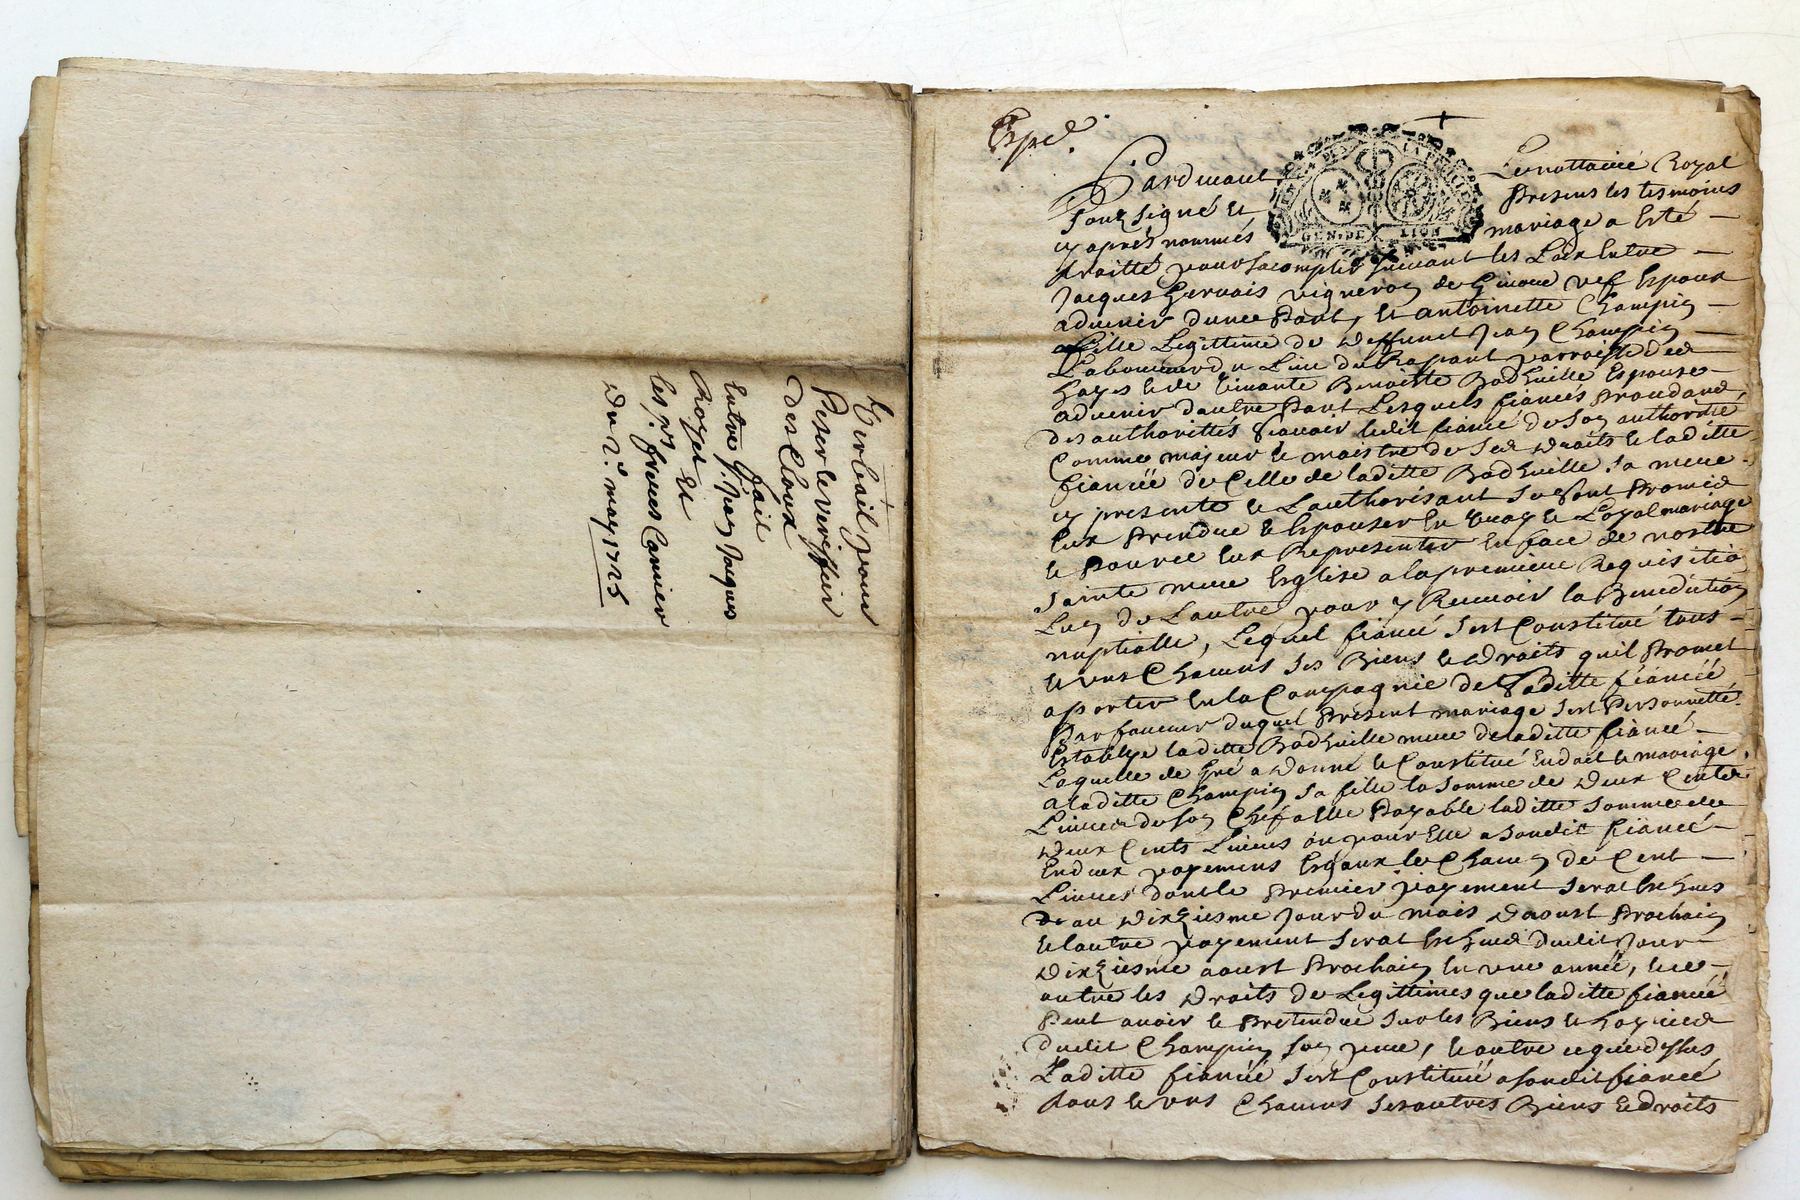 Verbail pour
Peser le veriffier
des Cloux
fait
Entre Sr. Jean Jacques
Royet Et
les Srs. freres Carrier
du 2e. may 1725
Exped.
Pardevant Le nottaire Royal
Soubsigné Et Presens les tesmoins
cy aprés nommés mariage a Esté
GEN. DE LION
traitté pour sacomplir suivant les Loix Entre
Jacques Gervais vigneron de vef Espoux
advenir dune Part, Et antoinette Champin
fille Legittime de deffunct Jean Champin
Laboureur du Lieu du parroisse des
hayes Et de vivante Benoitte Espouse
advenir dautre Part Lesquels fiancés Procedans
des authorittés scavoir ledit fiancé de son authorité
Comme majeur Et maistre de ses droits Et laditte
fiancée de Celle de laditte sa mere
cy presente Et Lauthorisant se sont Promis
Eux Prendre Et Espouser En vray Et Loyal mariage
Et Pour ce Eux Representer En face de nostre
Sainte mere Esglise a la premiere Requisition
Lun de Lautre pour y Recevoir la Benediction
nuptialle, Lequel fiancé sest Constitué tous
Et uns Chacuns ses Biens Et droits quil Promet
aporter En la Compagnie de Laditte fiancée
Par faveur duquel Present mariage sest Personnelle
Establye laditte mere de laditte fiancée
Laquelle de gré a donné Et Constitué En dot Et mariage
a laditte Champin sa fille la somme de deux Cents
Livres de son Chef a Elle Payable laditte somme de
deux Cents Livres ou pour Elle a sondit fiancé
En deux payemens Esgaux Et Chacun de Cent
Livres dont le Premier payement serat Escheus
au dixziesme jour du mois daoust Prochain
Et lautre payement serat Escheus dudit jour
dixziesme aoust Prochain En une année, Et ce
outre les droits de Legittimes que laditte fiancée
Peut avoir Et Pretendre sur les Biens Et hoyries
dudit Champin son pere, Et outre ce que dessus
Laditte fiancée sest Constituée a sondit fiancé
tous Et uns Chacuns ses autres Biens Et droits